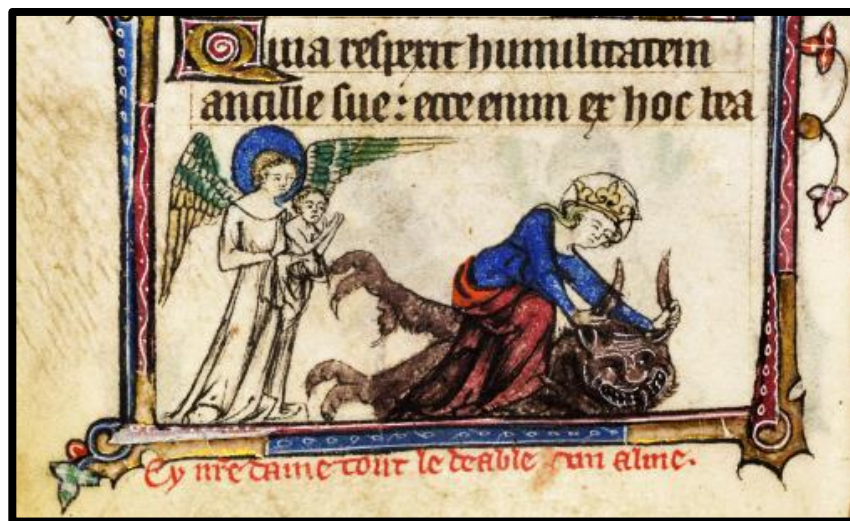 Quia respexit humilitatem
ancille sue : ecce enim ex hoc bea
Cy nre dame tout le deable alme.